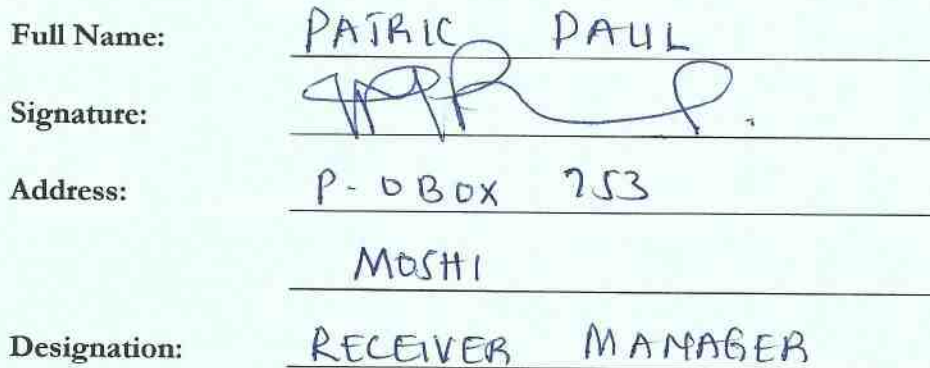 Full Name: PATRIC PAUL
Signature:
Address: P-OBOX 753
MOSHI
Designation: RECEIVER MANAGER